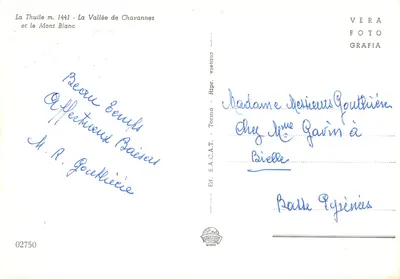 La Thuile m. 1441 - La Vallée de Chavannes
et le Mont Blanc
VERA
FOTO
GRAFIA
Beau temps
Affectueux Baisers
M. R. Gouthière
Madame Messieurs Gouthière
Chez Mme Gavin à
Bielle
Basse Pyrénées
Ed. S.A.C.A.T. - Torino - Ripr. vietata
02750